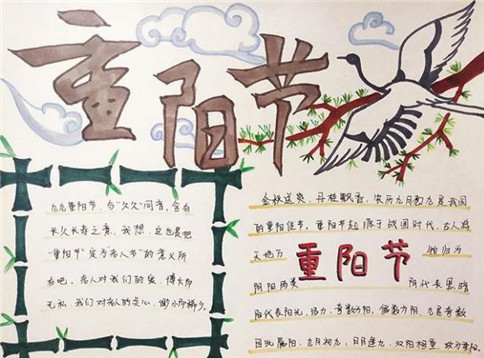 重阳节
九九重阳节，与"久久"同音，含有
长久长寿之意，我想，这也是把
"重阳节"定为"老人节"的意义所
在吧。老人对我们的爱，博大而
无私，我们对老人的关心，却
金秋送爽，丹桂飘香，农历九月初九是我国
的重阳佳节，重阳节起源于战国时代，古人将
天地万 归为
重阳节
阴阳两类 阴代表黑暗
阳代表阳光，活力，奇数为阳，偶数为阴，九是奇数
因此属阳，九月初九，日月逢九，双阳相重，故为重阳。